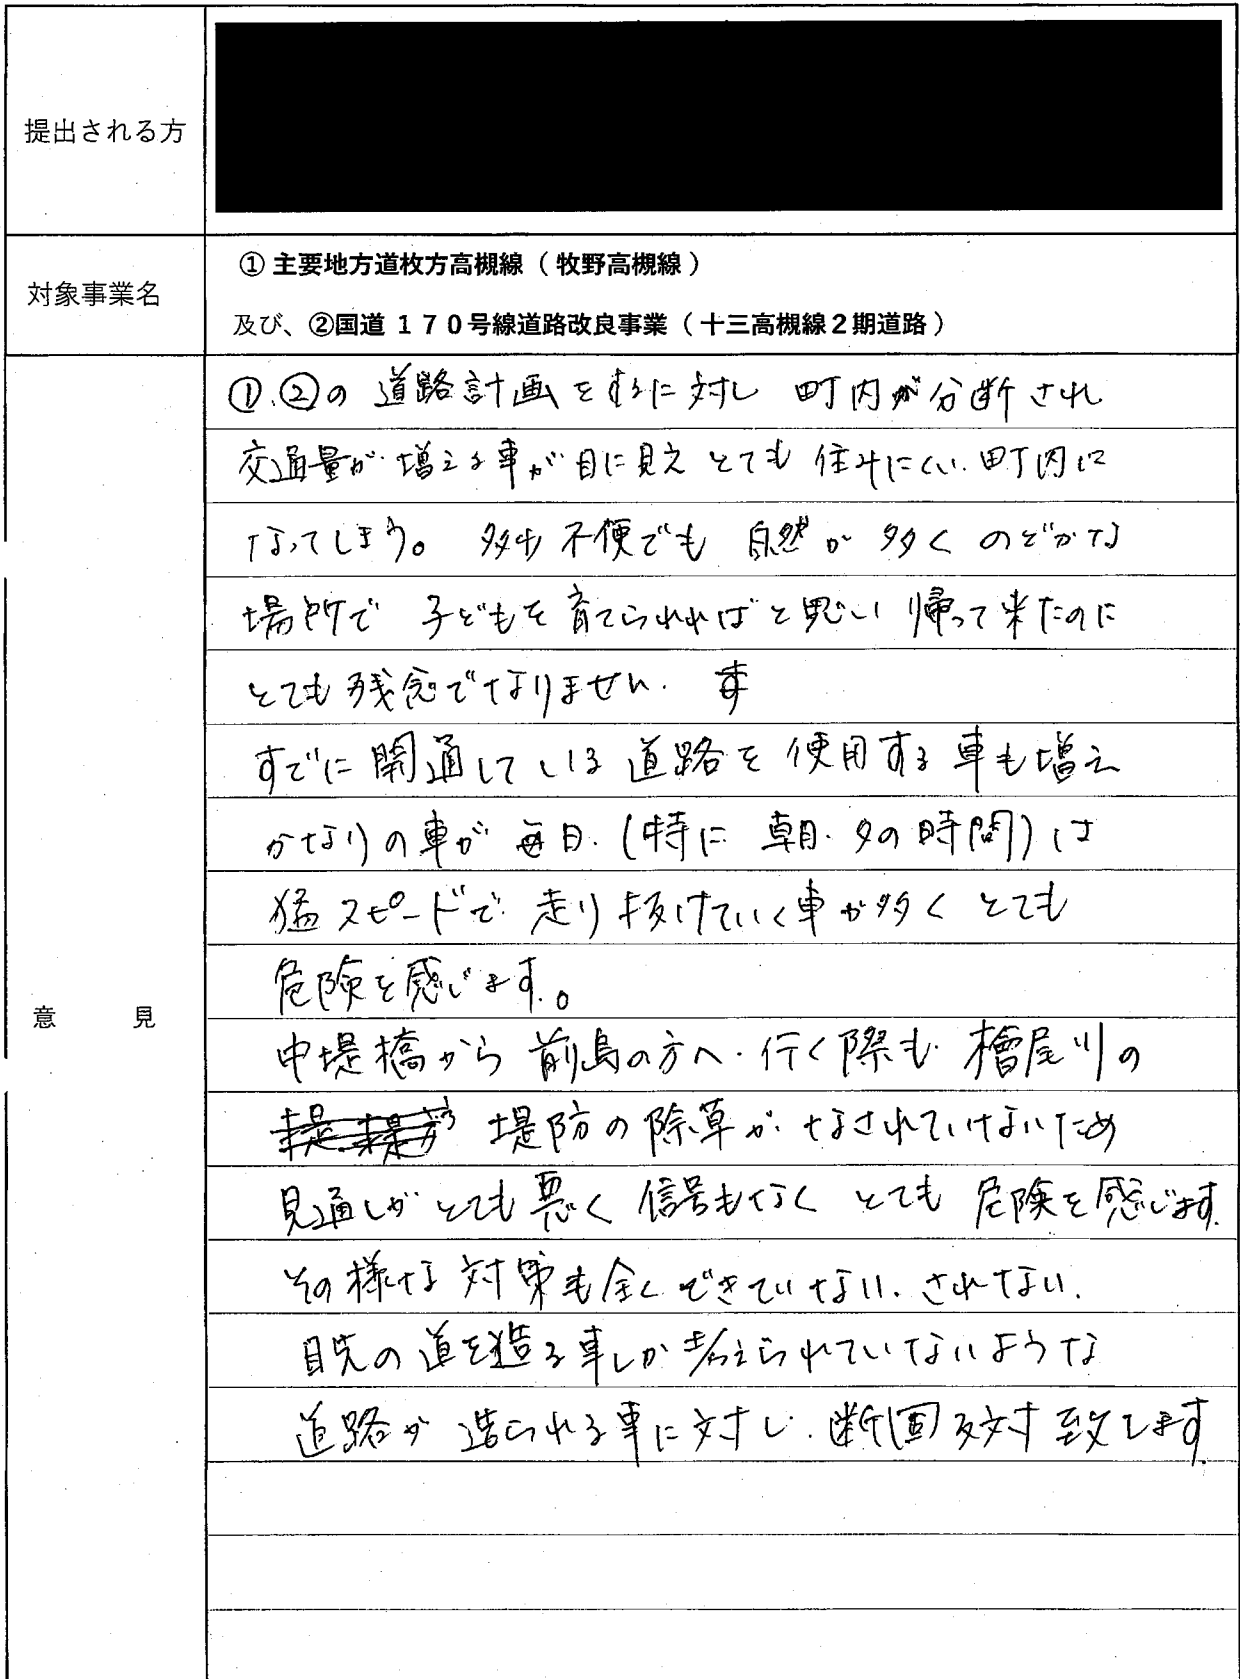 提出される方
対象事業名
① 主要地方道枚方高槻線（牧野高槻線）
及び、②国道１７０号線道路改良事業（十三高槻線２期道路）
意 見
①.②の 道路計画をするに対し 町内が分断され
交通量が増える車が目に見え とても 住みにくい町内に
なってしまう。 多少不便でも 自然が多くのどかな
場所で 子どもを育てられればと思い 帰って来たのに
とても残念でなりません. す
すでに開通している道路を使用する車も増え
かなりの車が毎日.(特に 朝.夕の時間)は
猛スピードで 走り抜けていく車が多く とても
危険を感じます。
中堤橋から 前島の方へ 行く際も 檜尾川の
堤防の除草がなされていけないため
見通しがとても悪く 信号もなく とても 危険を感じます.
その様な対策も全くできていない. されない.
目先の道を造る事しか考えられていないような
道路が造られる事に対し. 断固反対致します.